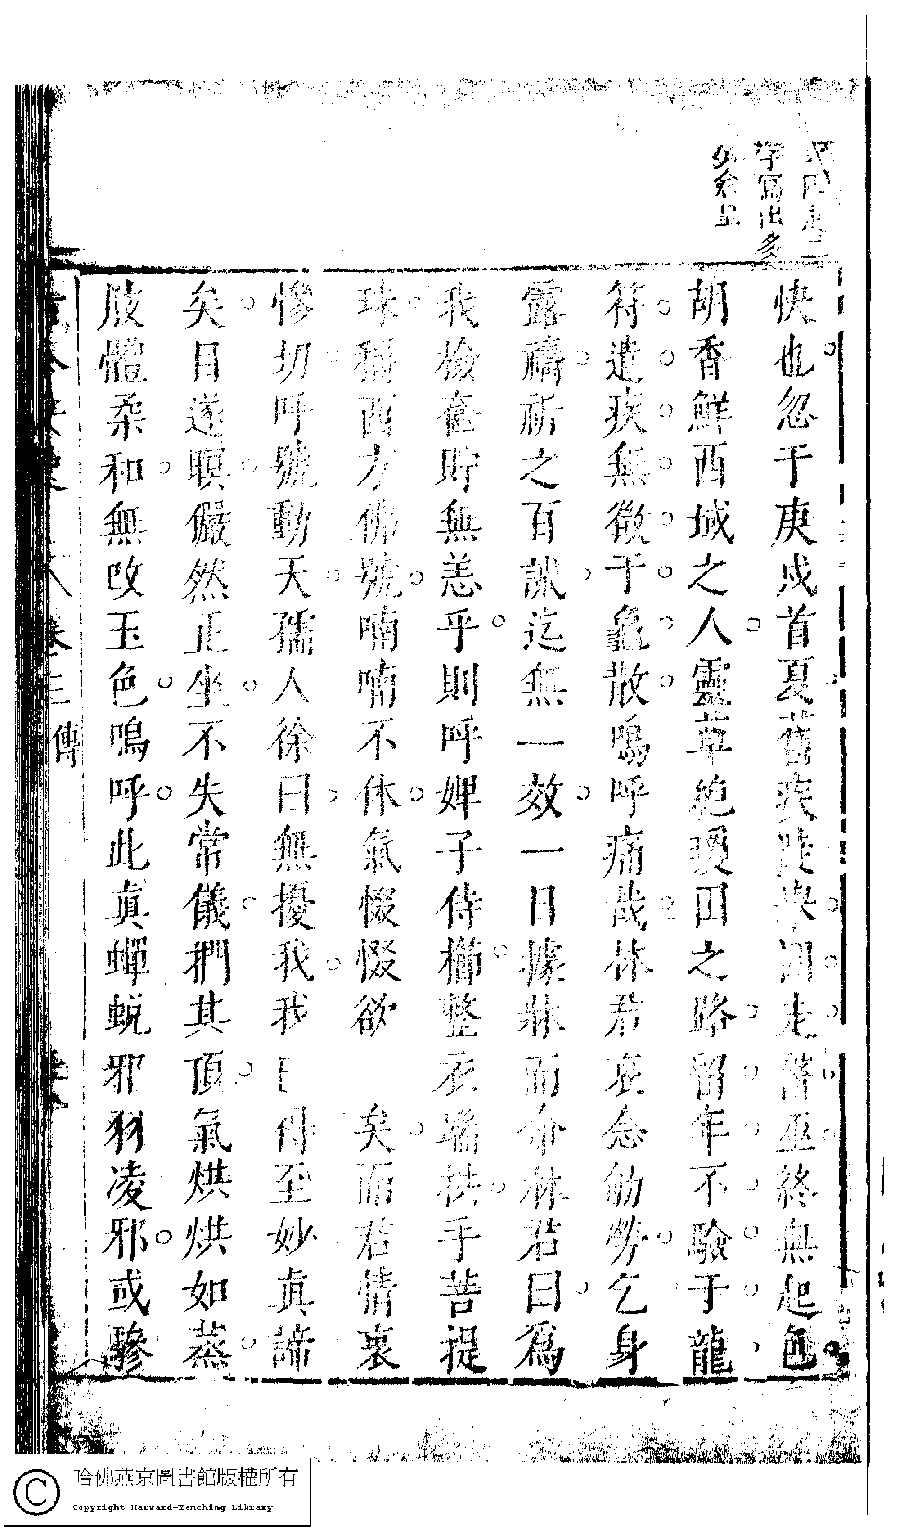 字寫出多
快也忽于庚戌首夏舊疾陡決奔走醫巫終無起色
胡香鮮西域之人靈草絶瑗田之路留年不驗于龍
符遣疾無徵于龜散嗚呼痛哉林君哀念劬勞乞身
露禱祈之百訣迄無一效一日據牀而命林君曰為
我檢舊貯無恙乎則呼婢子侍櫛整衣端拱手菩提
珠稱西方佛號喃喃不休氣惙惙欲 矣而君情衷
慘切呼號動天孺人徐曰無擾我我 得至妙真諦
矣目遂瞑儼然正坐不失常儀捫其頂氣烘烘如蒸
肢體柔和無改玉色嗚呼此真蟬蛻邪羽凌邪或驂
卷三 傳
哈佛燕京圖書館版權所有
Copyright Harvard-Yenching Library